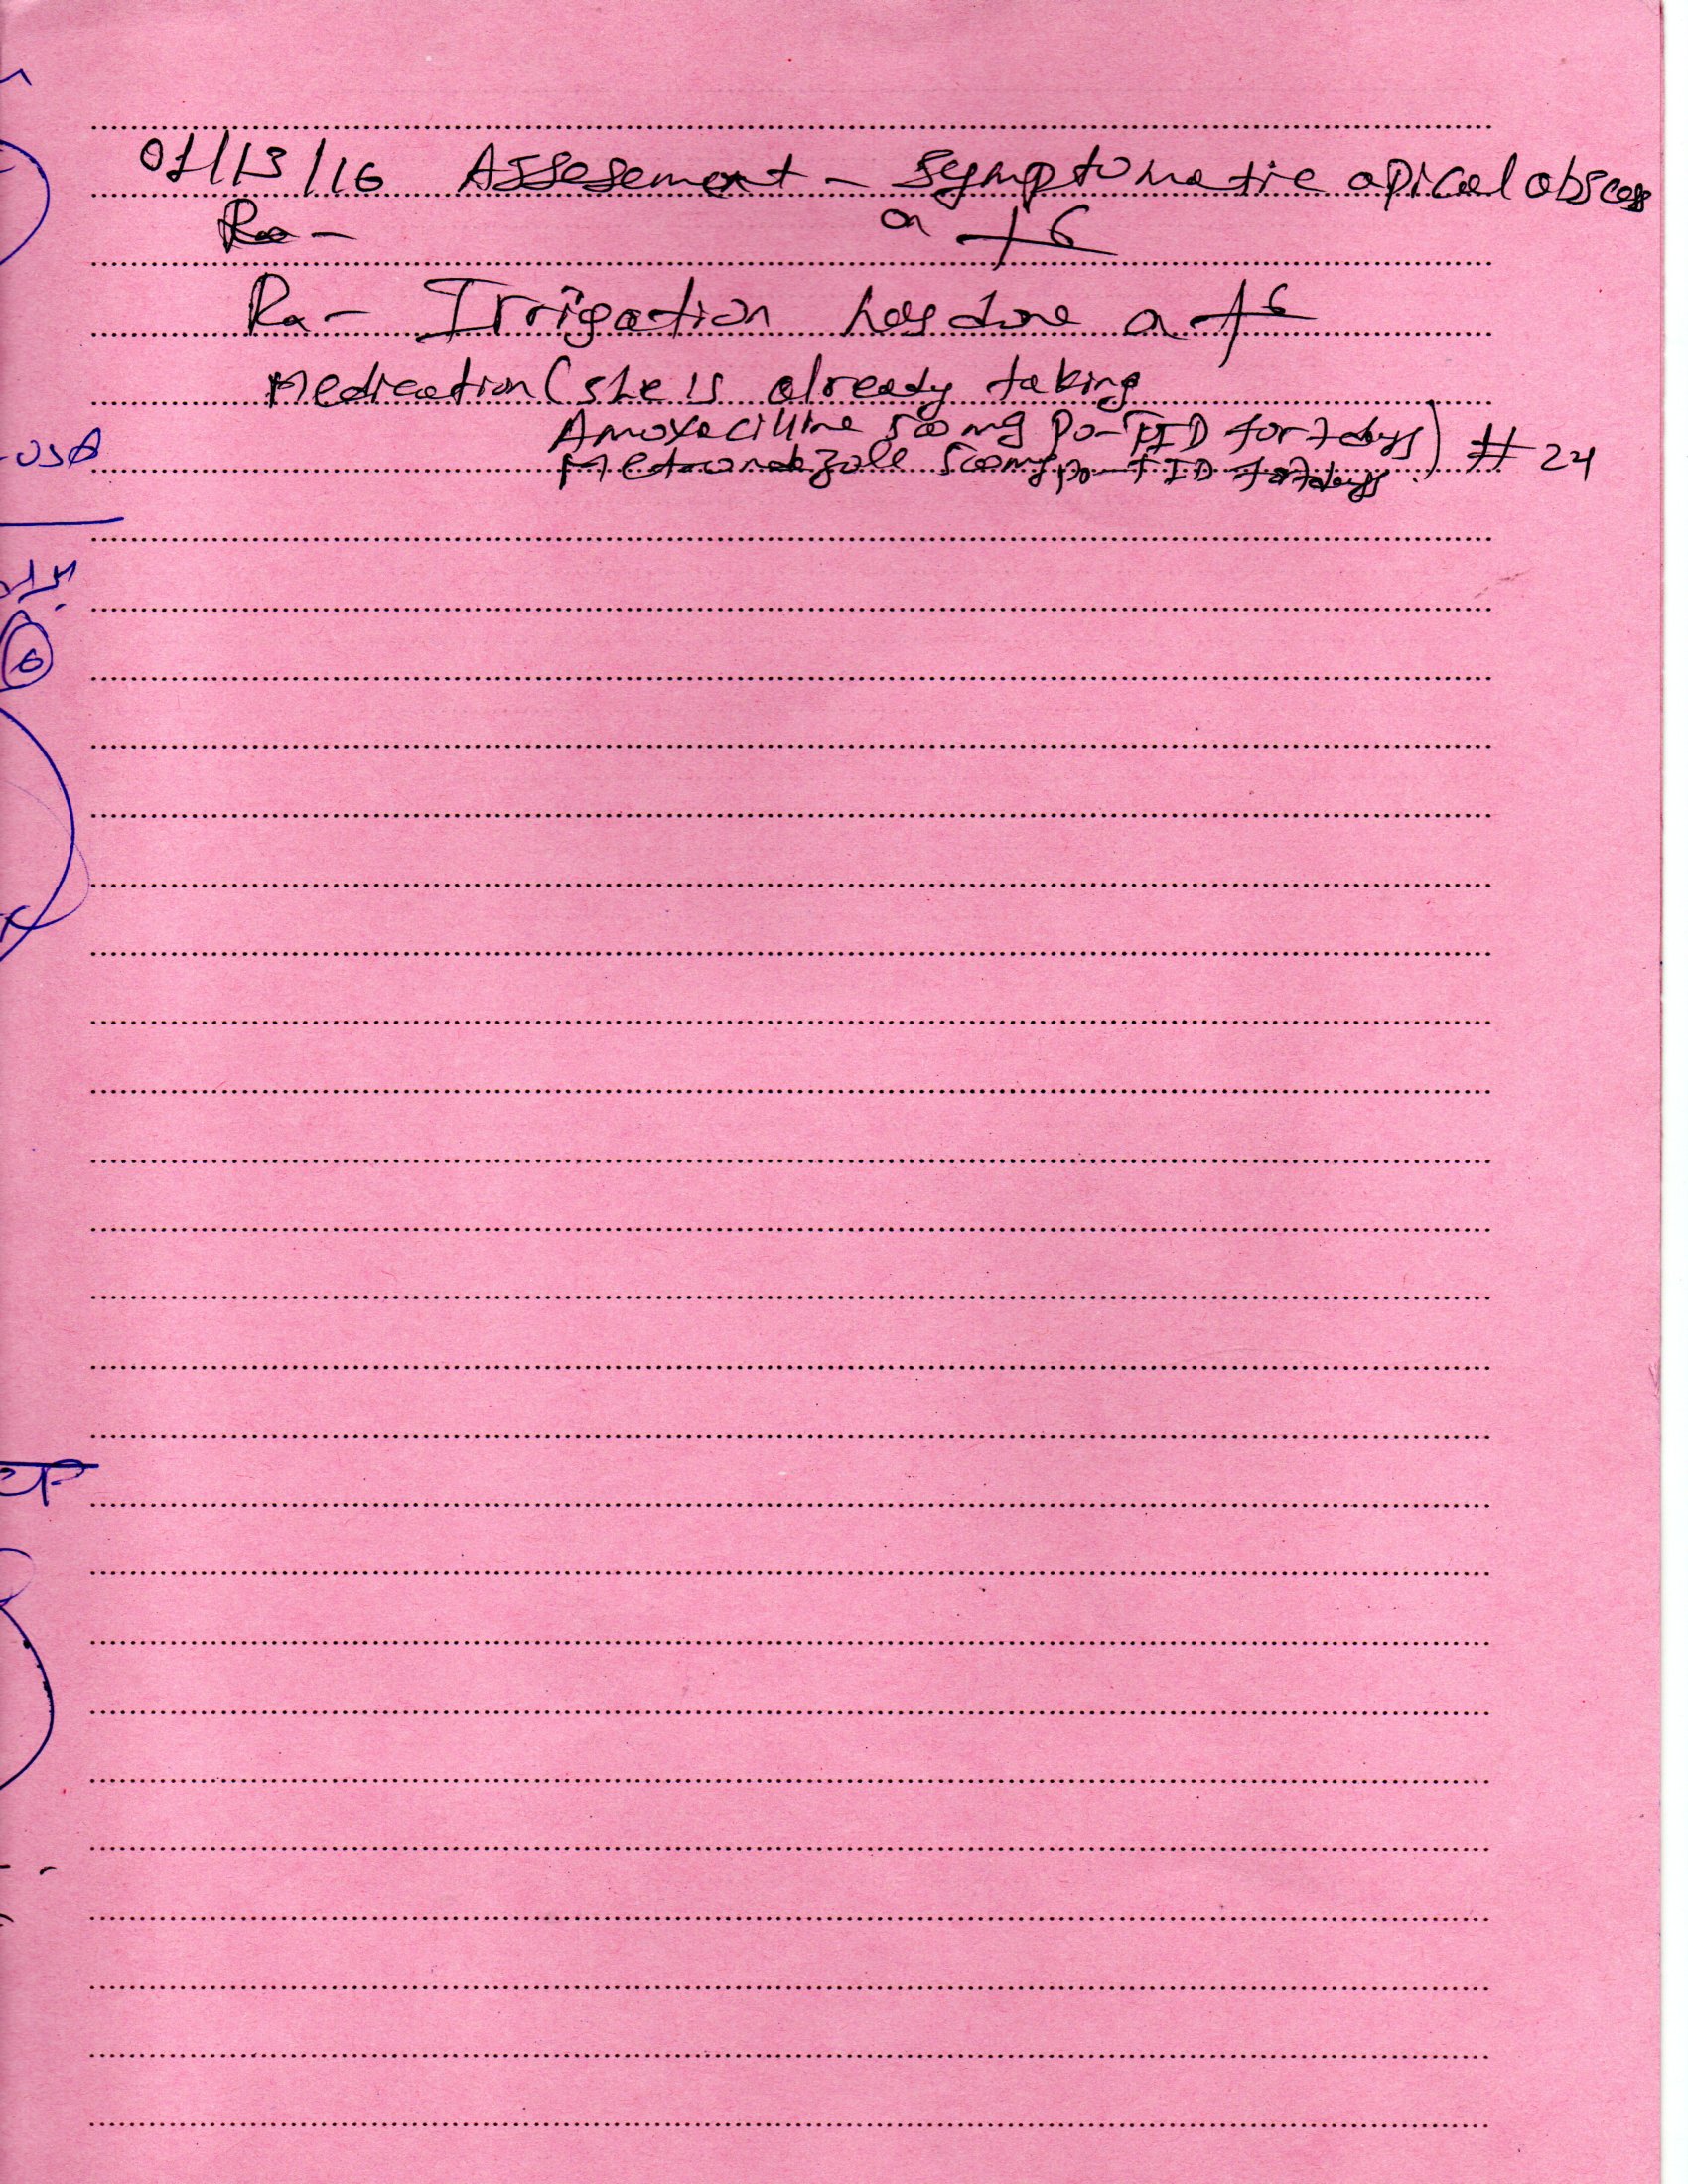 01/13/16 Assesement - Symptomatic apical abscess
on 6
Rx - Irrigation has done on 6
Medication (she is already taking
Amoxacilline 500 mg PO-TID for 7 days) # 24
Metronidazole 500mg po-TID for 7 days